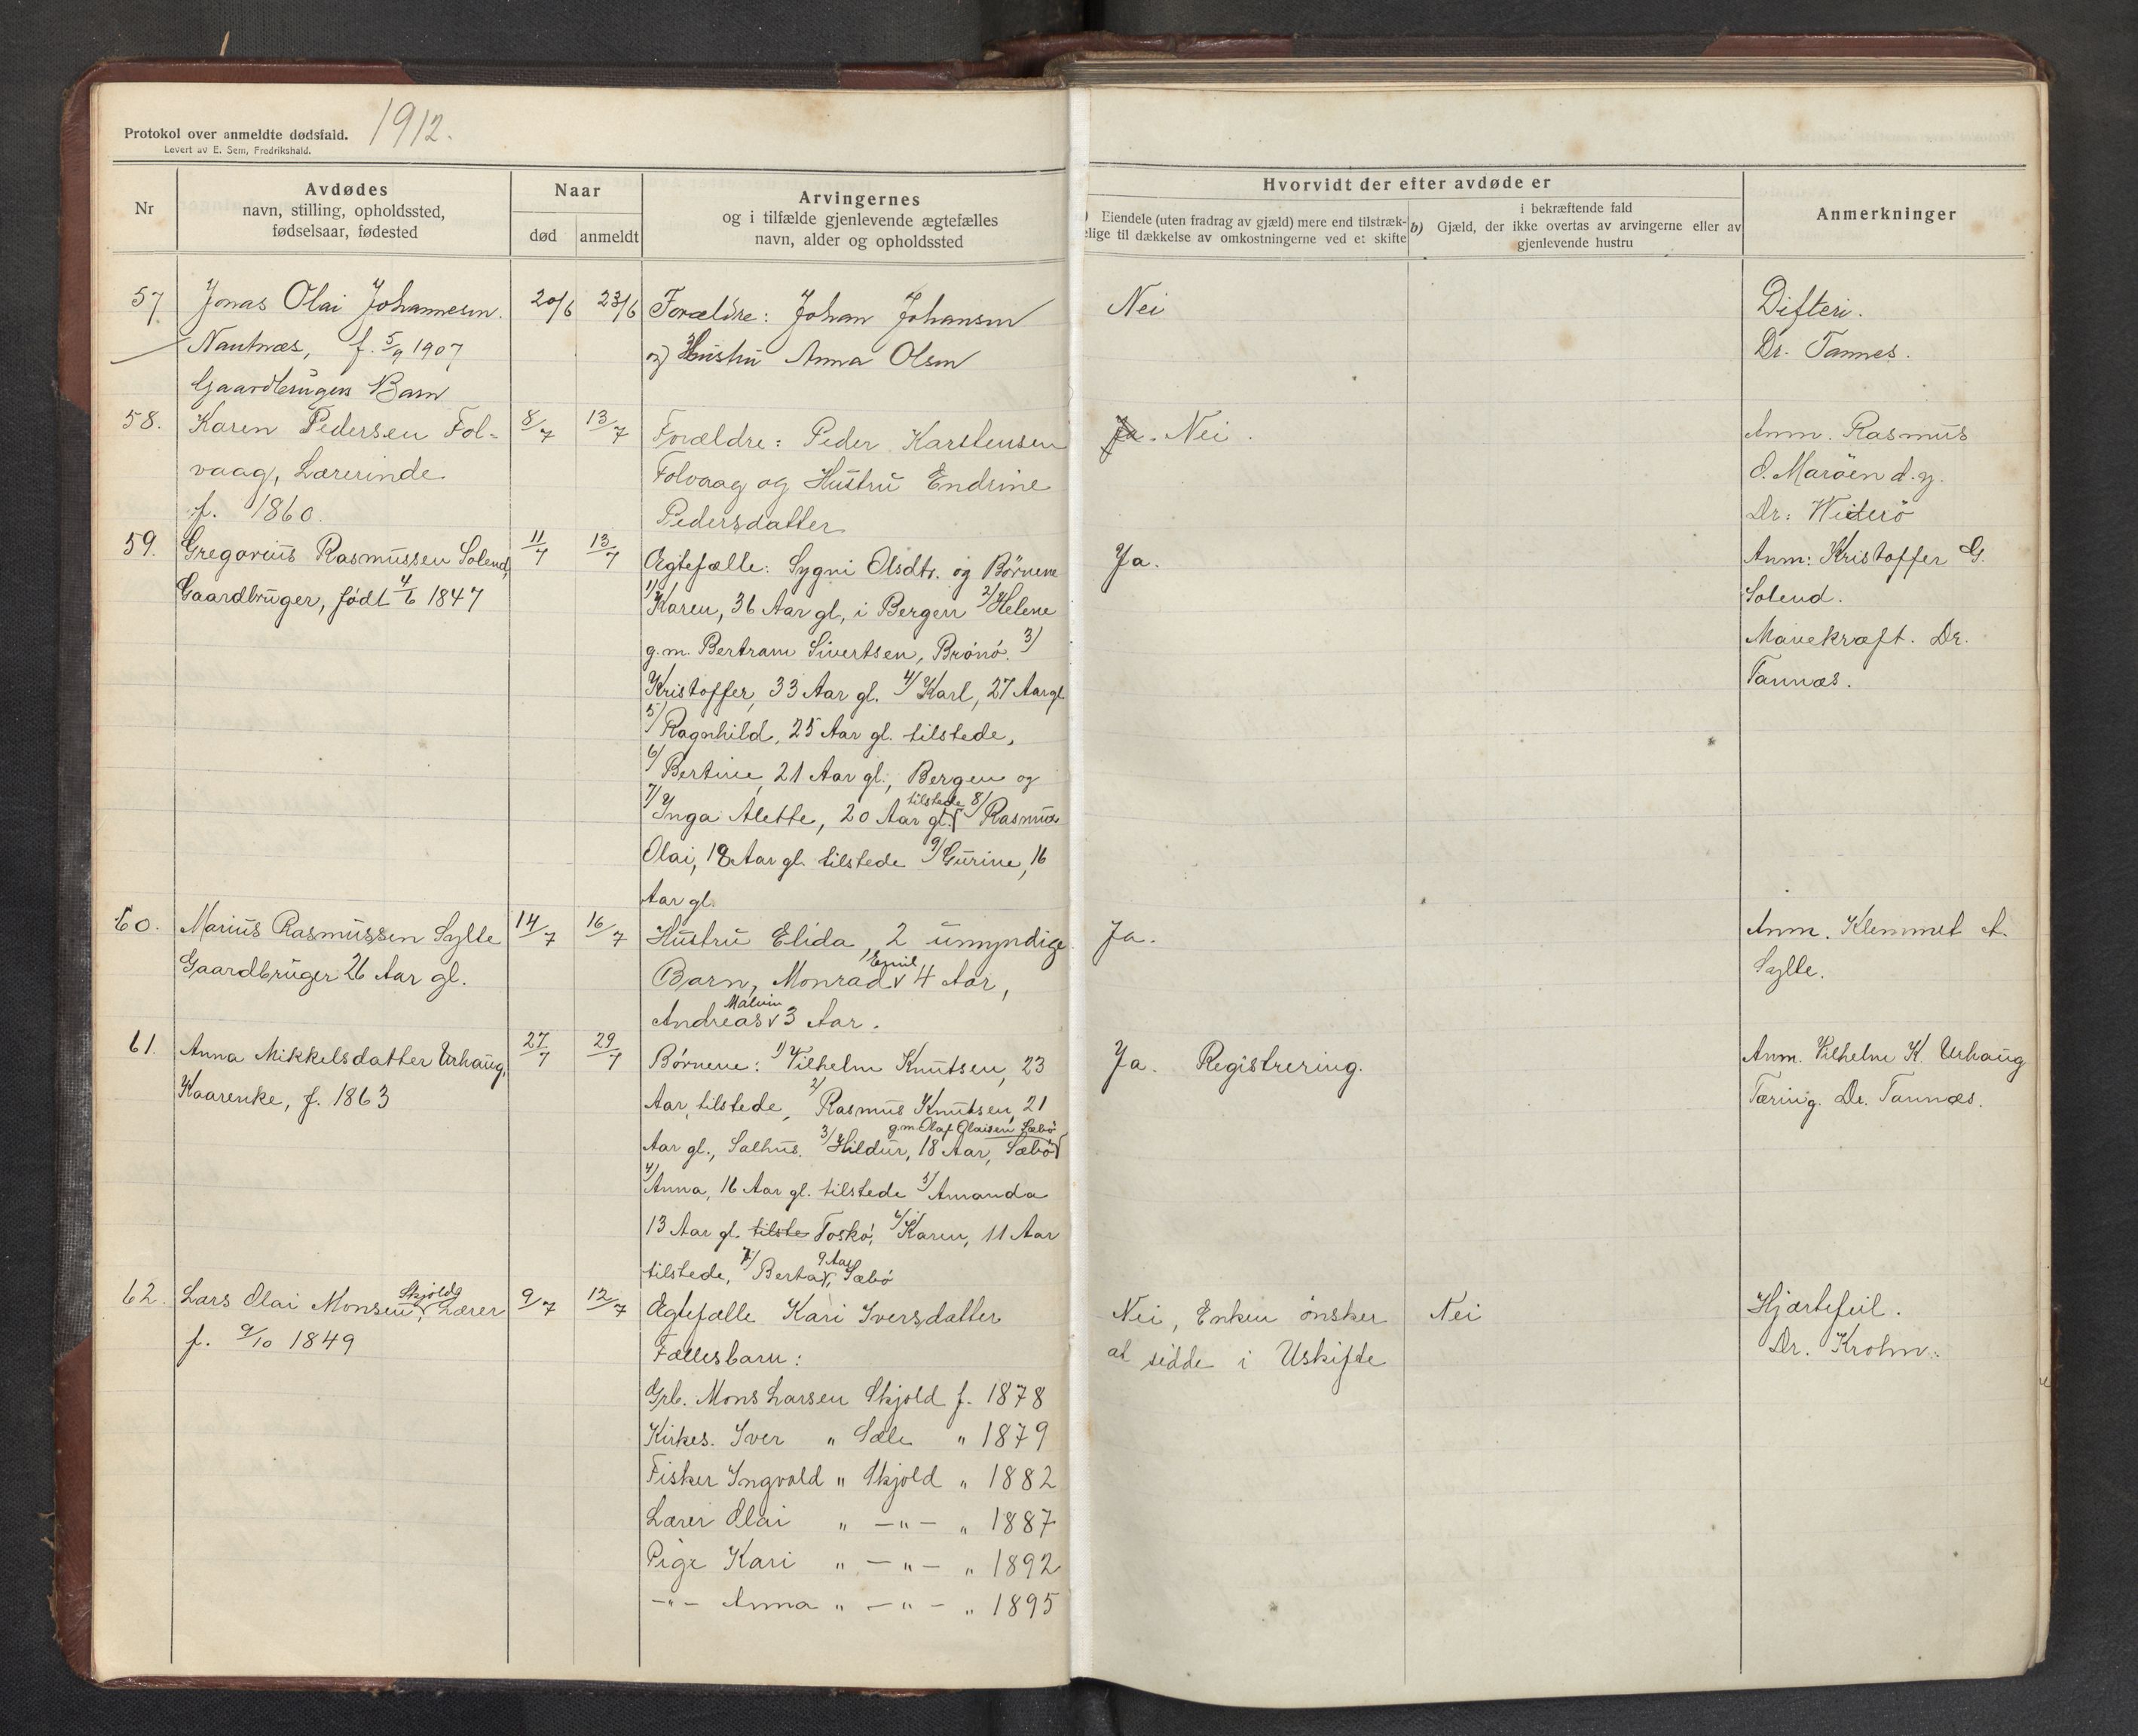 1912.
Protokol over anmeldte dødsfald.
Levert av E. Sem, Fredrikshald.
Nr
Avdødes
navn, stilling, opholdssted,
fødselsaar, fødested
Naar
død
anmeldt
Arvingernes
og i tilfælde gjenlevende ægtefælles
navn, alder og opholdssted
Hvorvidt der efter avdøde er
Eiendele (uten fradrag av gjæld) mere end tilstræk-
elige til dækkelse av omkostningerne ved et skifte
b)
i bekræftende fald
Gjæld, der ikke overtas av arvingerne eller av
gjenlevende hustru
Anmerkninger
57
Jonas Olai Johannesen.
Nautnæs, f. 5/9 1907
Gaardbrugers Barn
20/6
23/6
Forældre: Johan Johansen
og Hustru Anna Olsen
Nei
Difteri.
Dr. Tannes.
58.
Karen Pedersen Fol-
vaag, Lærerinde
f. 1860.
8/7
13/7
Forældre: Peder Karstensen
Folvaag og Hustru Endrine
Pedersdatter
Ja. Nei.
Anm. Rasmus
O. Maröen d.y.
Dr: Widerö
59.
Gregorius Rasmussen Solend,
Gaardbruger, født 4/6 1847
11/7
13/7
Ægtefælle: Sygni Olsdtr. og Börnene
1/ Karen, 36 Aar gl, i Bergen 2/ Helene
g.m. Bertram Sivertsen, Brönö. 3/
Kristoffer, 33 Aar gl. 4/ Karl, 27 Aar gl
5/ Ragnhild, 25 Aar gl. tilstede,
6/ Bertine, 21 Aar gl., Bergen og
7/ Inga Alette, 20 Aar gl. tilstede 8/ Rasmus
Olai, 18 Aar gl. tilstede 9/ Gurine, 16
Aar gl.
Ja.
Anm: Kristoffer G.
Solend.
Mavekræft. Dr.
Tannæs.
60.
Marius Rasmussen Sylte
Gaardbruger 26 Aar gl.
14/7
16/7
Hustru Elida, 2 umyndige
Barn, Monrad Emil 4 Aar,
Andreas Malvin 3 Aar.
Ja.
Anm. Klemmet A.
Sylte.
61.
Anna Mikkelsdatter Urhaug,
Kaarenke, f. 1863
27/7
29/7
Börnene: 1/ Vilhelm Knutsen, 23
Aar, tilstede, 2/ Rasmus Knutsen, 21
Aar gl., Salhus. 3/ Hildur, 18 Aar, Sæbö g.m. Olaf Olaisen Sæbö
4/ Anna, 16 Aar gl. tilstede 5/ Amanda
13 Aar gl. tilste Toskö, 6/ Karen, 11 Aar
tilstede, 7/ Berta 9 Aar, Sæbö
Ja. Registrering.
Anm. Vilhelm K. Urhaug
Tæring. Dr. Tannæs.
62.
Lars Olai Monsen Skjold, Lærer
f. 9/10 1849
9/7
12/7
Ægtefælle Kari Iversdatter
Fællesbarn:
Grb. Mons Larsen Skjold f. 1878
Kirkes. Iver " Sæle " 1879
Fisker Ingvald " Skjold " 1882
Lærer Olai " —"— " 1887
Pige Kari " —"— " 1892
—"— Anna " —"— " 1895
Nei, Enken önsker
at sidde i Uskifte
Nei
Hjærtefeil.
Dr. Krohn.